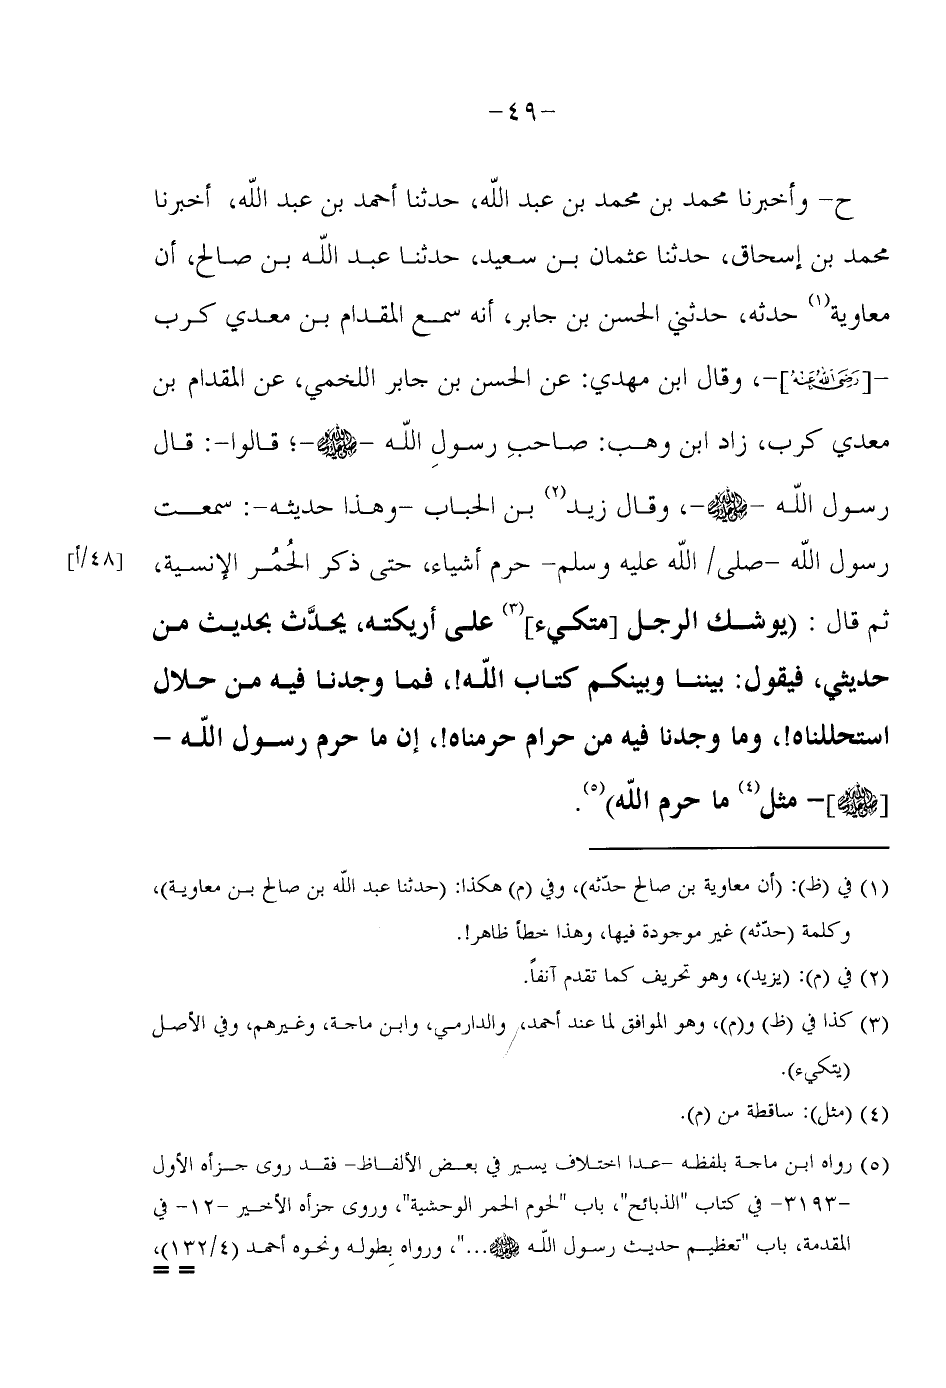 -٤٩-
ح- وأخبرنا محمد بن محمد بن عبد الله، حدثنا أحمد بن عبد الله، أخبرنا
محمد بن إسحاق، حدثنا عثمان بن سعيد، حدثنا عبد الله بن صالح، أن
معاوية(١) حدثه، حدثني الحسن بن جابر، أنه سمع المقدام بن معدي كرب
-[رَضِيَ اللهُ عَنْهُ]-، وقال ابن مهدي: عن الحسن بن جابر اللخمي، عن المقدام بن
معدي كرب، زاد ابن وهب: صاحبِ رسولِ الله -ﷺ-؛ قالوا-: قال
رسول الله -ﷺ-، وقال زيد(٢) بن الحباب -وهذا حديثه-: سمعت
رسول الله -صلى/ الله عليه وسلم- حرم أشياء، حتى ذكر الحُمُر الإنسية، [٤٨/أ]
ثم قال : (يوشك الرجل [متكيء](٣) على أريكته، يحدَّث بحديث من
حديثي، فيقول: بيننا وبينكم كتاب الله!، فما وجدنا فيه من حلال
استحللناه!، وما وجدنا فيه من حرام حرمناه!، إن ما حرم رسول الله -
[ﷺ]- مثل(٤) ما حرم الله)(٥).
(١) في (ظ): (أن معاوية بن صالح حدّثه)، وفي (م) هكذا: (حدثنا عبد الله بن صالح بن معاوية)،
وكلمة (حدّثه) غير موجودة فيها، وهذا خطأ ظاهر!.
(٢) في (م): (يزيد)، وهو تحريف كما تقدم آنفاً.
(٣) كذا في (ظ) و(م)، وهو الموافق لما عند أحمد، والدارمي، وابن ماجة، وغيرهم، وفي الأصل
(يتكيء).
(٤) (مثل): ساقطة من (م).
(٥) رواه ابن ماجة بلفظه -عدا اختلاف يسير في بعض الألفاظ- فقد روى جزأه الأول
-٣١٩٣- في كتاب "الذبائح"، باب "لحوم الحمر الوحشية"، وروى جزأه الأخير -١٢- في
المقدمة، باب "تعظيم حديث رسول الله ﷺ..."، ورواه بطوله ونحوه أحمد (١٣٢/٤)،
= =